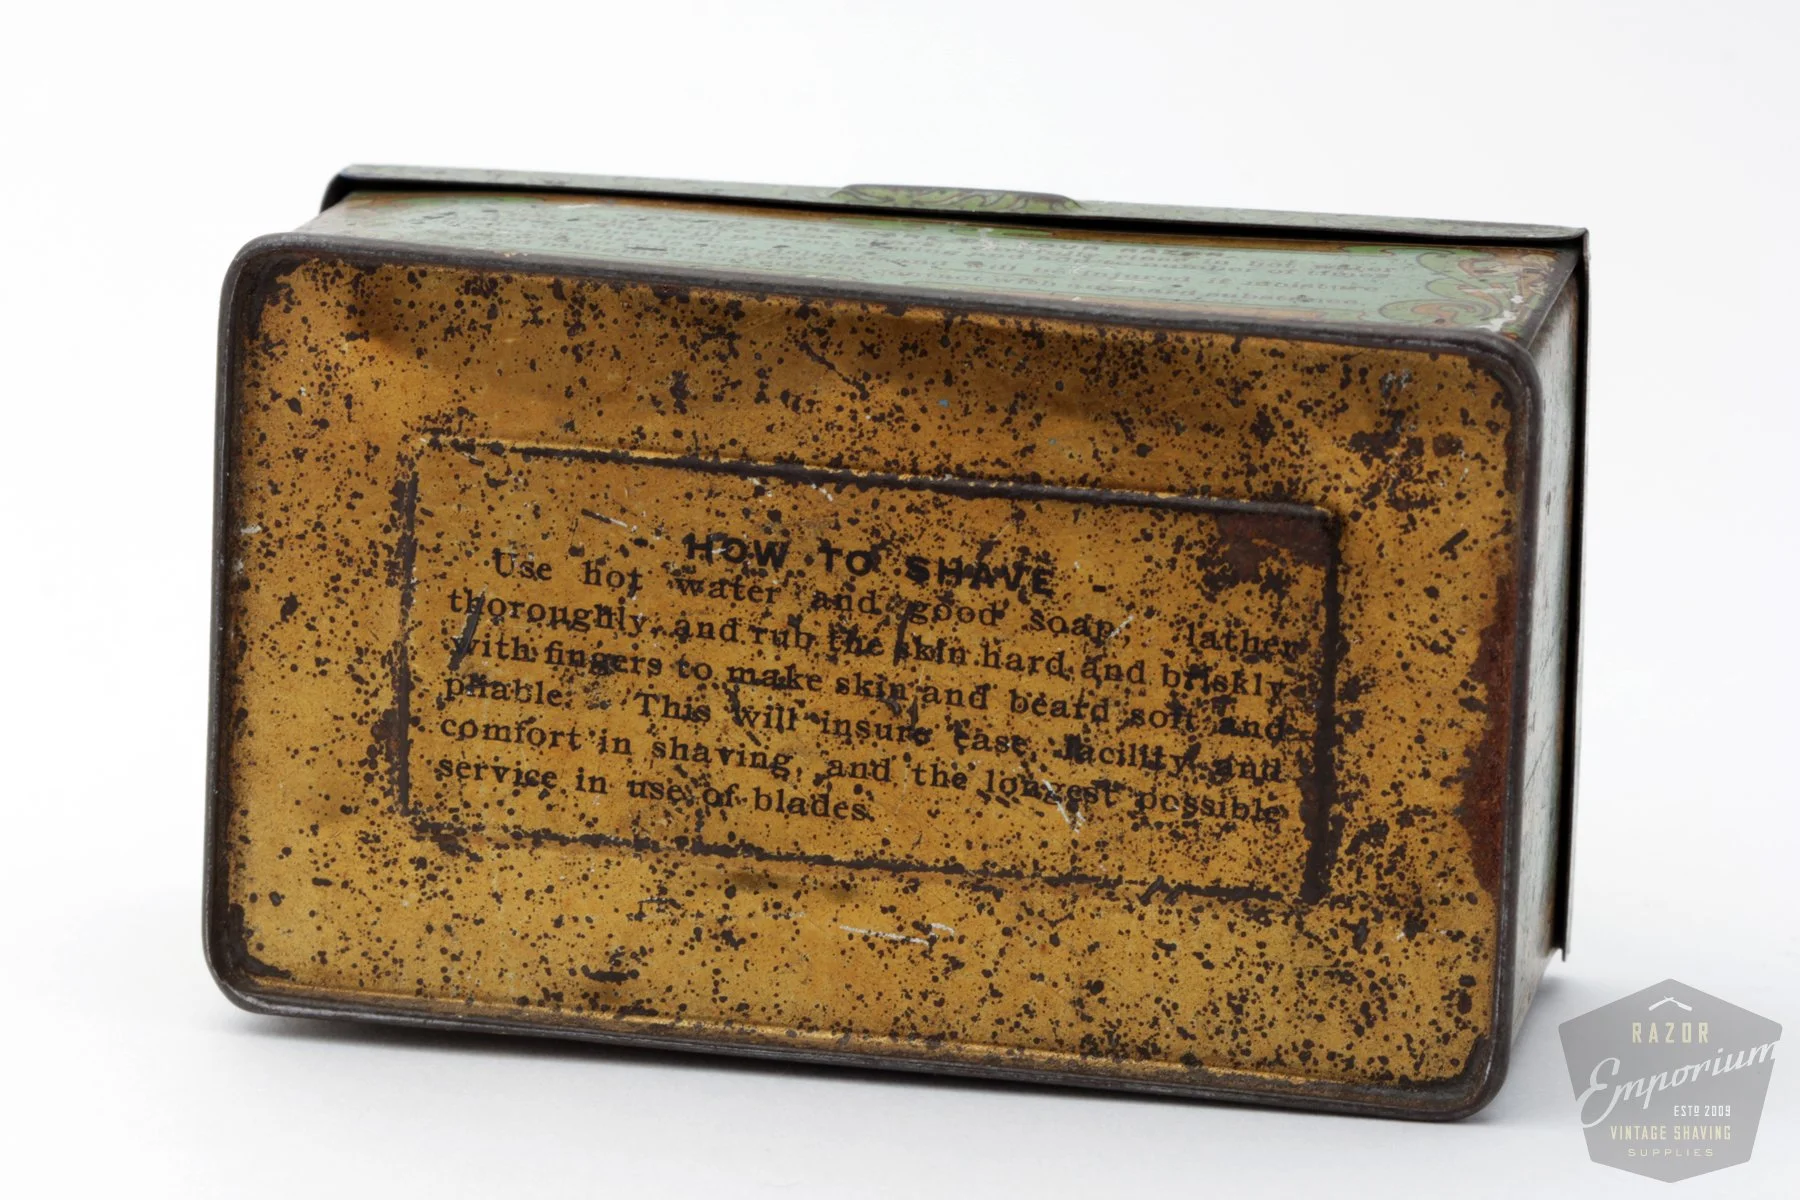 HOW TO SHAVE -
Use hot water and good soap, lather
thoroughly, and rub the skin hard and briskly
with fingers to make skin and beard soft and
pliable. This will insure ease, facility and
comfort in shaving, and the longest possible
service in use of blades.
RAZOR
Emporium
ESTD 2009
VINTAGE SHAVING
SUPPLIES